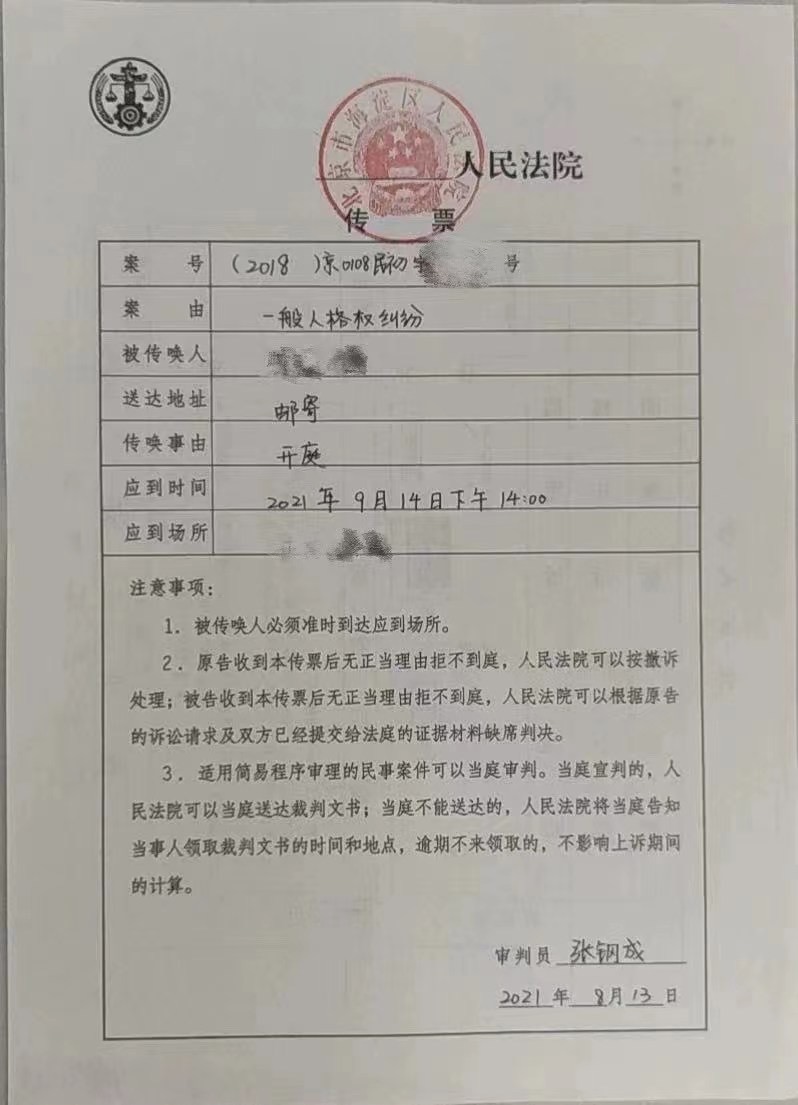 北京市海淀区人民法院
人民法院
传 票
案 号 (2018 )京0108民初字 号
案 由 一般人格权纠纷
被传唤人
送达地址 邮寄
传唤事由 开庭
应到时间 2021年 9月14日下午14:00
应到场所
注意事项：
1．被传唤人必须准时到达应到场所。
2．原告收到本传票后无正当理由拒不到庭，人民法院可以按撤诉
处理；被告收到本传票后无正当理由拒不到庭，人民法院可以根据原告
的诉讼请求及双方已经提交给法庭的证据材料缺席判决。
3．适用简易程序审理的民事案件可以当庭审判。当庭宣判的，人
民法院可以当庭送达裁判文书；当庭不能送达的，人民法院将当庭告知
当事人领取裁判文书的时间和地点，逾期不来领取的，不影响上诉期间
的计算。
审判员 张钢成
2021年 8月13日